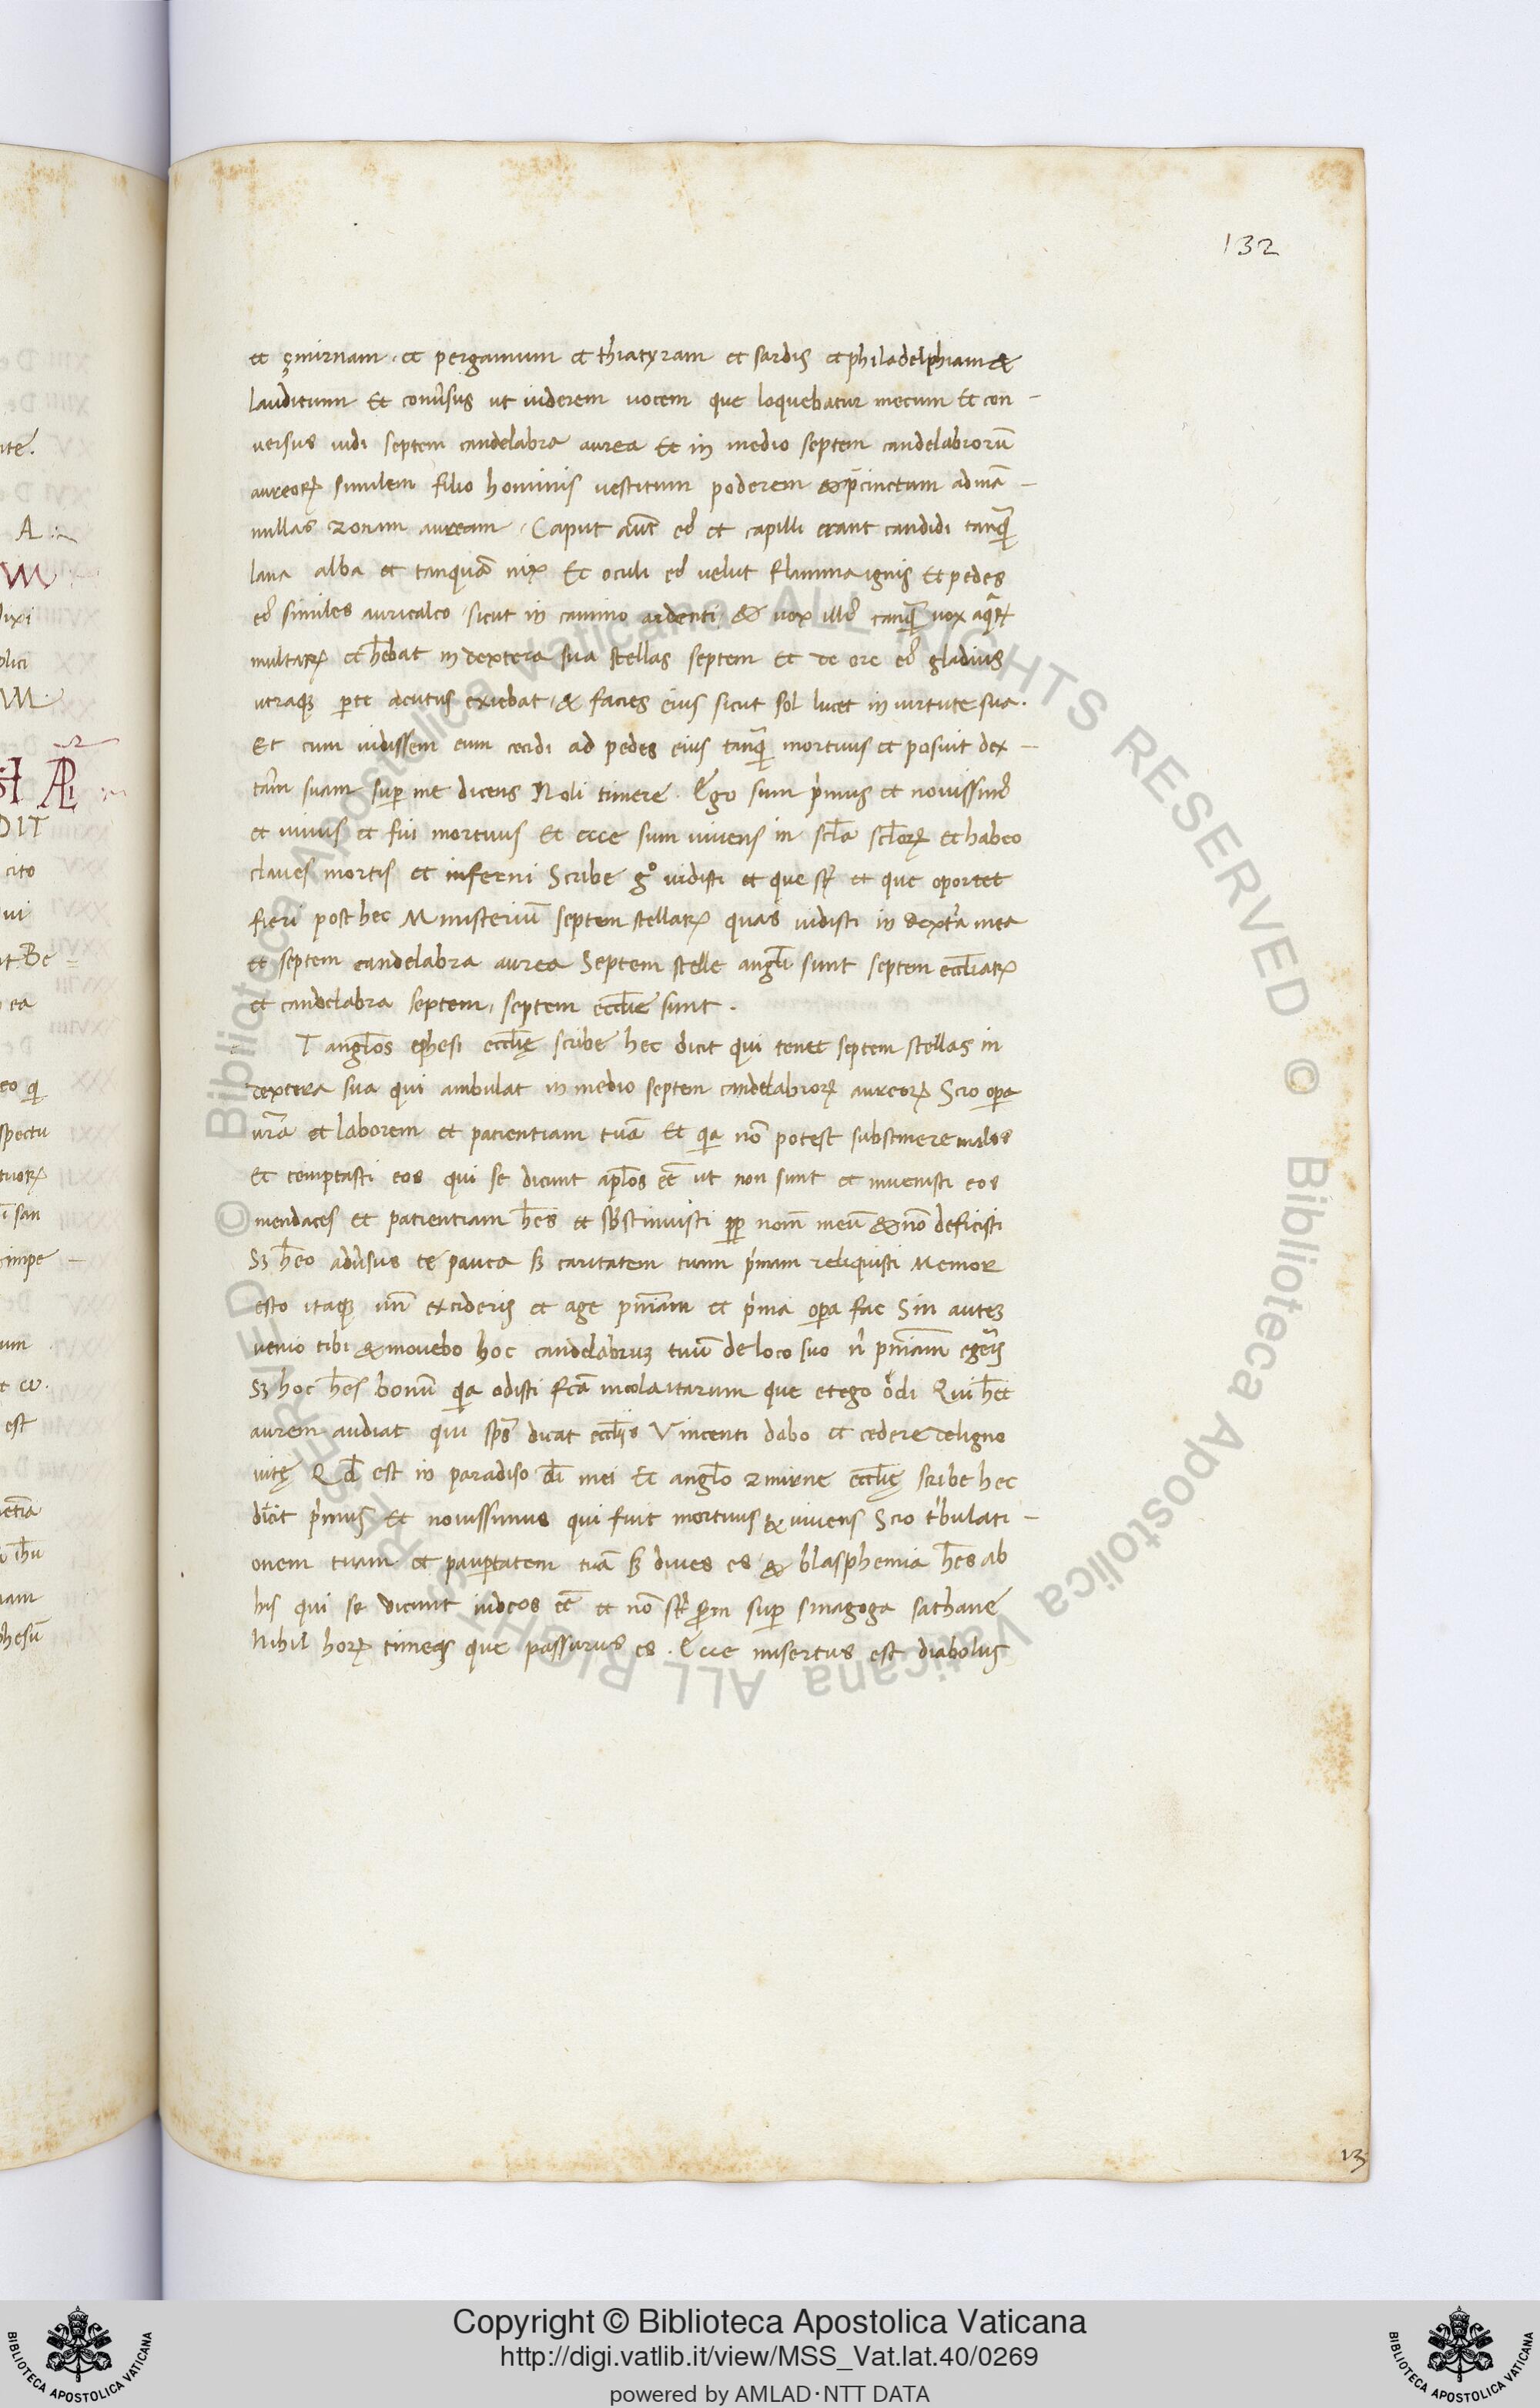 132
et çmirnam · et pergamum et thiatyram et sardis et philadelphiam &
lauditunn Et conu̾sus ut uiderem uocem que loquebatur mecum Et con -
versus uidi septem candelabra aurea Et in medio septem candelabrorū
aureoꝝ similem filio hominis vestitum poderem & p̄cinctum ad mā -
nillas zonam auream · Caput aūt ei᾽ et capilli erant candidi tanq̄
lana alba et tanquā nix Et oculi ei᾽ velut flamma ignis Et pedes
ei᾽ similes auricalco · sicut in camino ardenti & vox illi᾽ tanq̄ vox aq̄ꝝ
multaꝝ et h̄ebat in dextera sua stellas septem Et de ore ei᾽ gladius
utraqꝫ ꝑte acutus exiebat · & facies eius sicut sol lucet in uirtute sua ·
Et cum uidissem eum cecidi ad pedes eius tanq̄ mortuus et posuit dex -
tām suam suꝑ me dicens Noli timere · Ego sum p̍mus et nouissim᾽
et uiuus et fui mortuus Et ecce sum uiuens in scl̄a scl̄oꝝ et habeo
claues mortis et inferni Scribe gͦ uidisti et que sт̄ et que oportet
fieri post hec Ministeriū septem stellaꝝ quas uidisti in dext̾a mea
et septem candelabra aurea Septem stelle angl̄i sunt septem eccl̄iaꝝ
et candelabra septem, septem eccl̄ie sunt ·
T angl̄os ephesi eccl̄ię scribe hec dicit qui tenet septem stellas in
dextera sua qui ambulat in medio septem candelabroꝝ aureoꝝ Scio oꝑa
ur̄a et laborem et patientiam tuā Et q̄a nō potest substinere malos
Et temptasti eos qui se dicunt apl̄os eē ut non sunt et inuenisti eos
mendaces et patientiam h̄es et sb̄stinuisti ꝓꝑ nom̄ meū & nō defecisti
Sꝫ h̄eo adu̾sus te pauca sꝫ caritatem tuam p̍mam reliquisti Memor
esto itaqꝫ un̄ excideris et age pn̄iam et p̍ma oꝑa fac Sin autez
uenio tibi & mouebo hoc candelabruz tuū de loco suo n̍ pn̄iam eger̄is
Sꝫ hoc h̄es bonū q̄a odisti fc̄a nicolaitarum que et ego odi Qui h̄et
aurem audiat qui sp̄s dicat eccl̄iis Vincenti dabo et cedere de ligno
uitę Qd̄ est in paradiso dī mei Et angl̄o zmirne eccl̄ię scribe hec
dicit p̍mus Et nouissimus qui fuit mortuus & uiuens Scio t̍bulati -
onem tuam et pauꝑtatem tuā sꝫ diues es & blasphemia h̄es ab
his qui se dicunt iudeos eē et nō sт̄ suꝑ sinagoga sathane
Nihil hoꝝ timeas que passurus es · Ecce misertus est diabolus
23
Copyright © Biblioteca Apostolica Vaticana
http://digi.vatlib.it/view/MSS_Vat.lat.40/0269
powered by AMLAD·NTT DATA